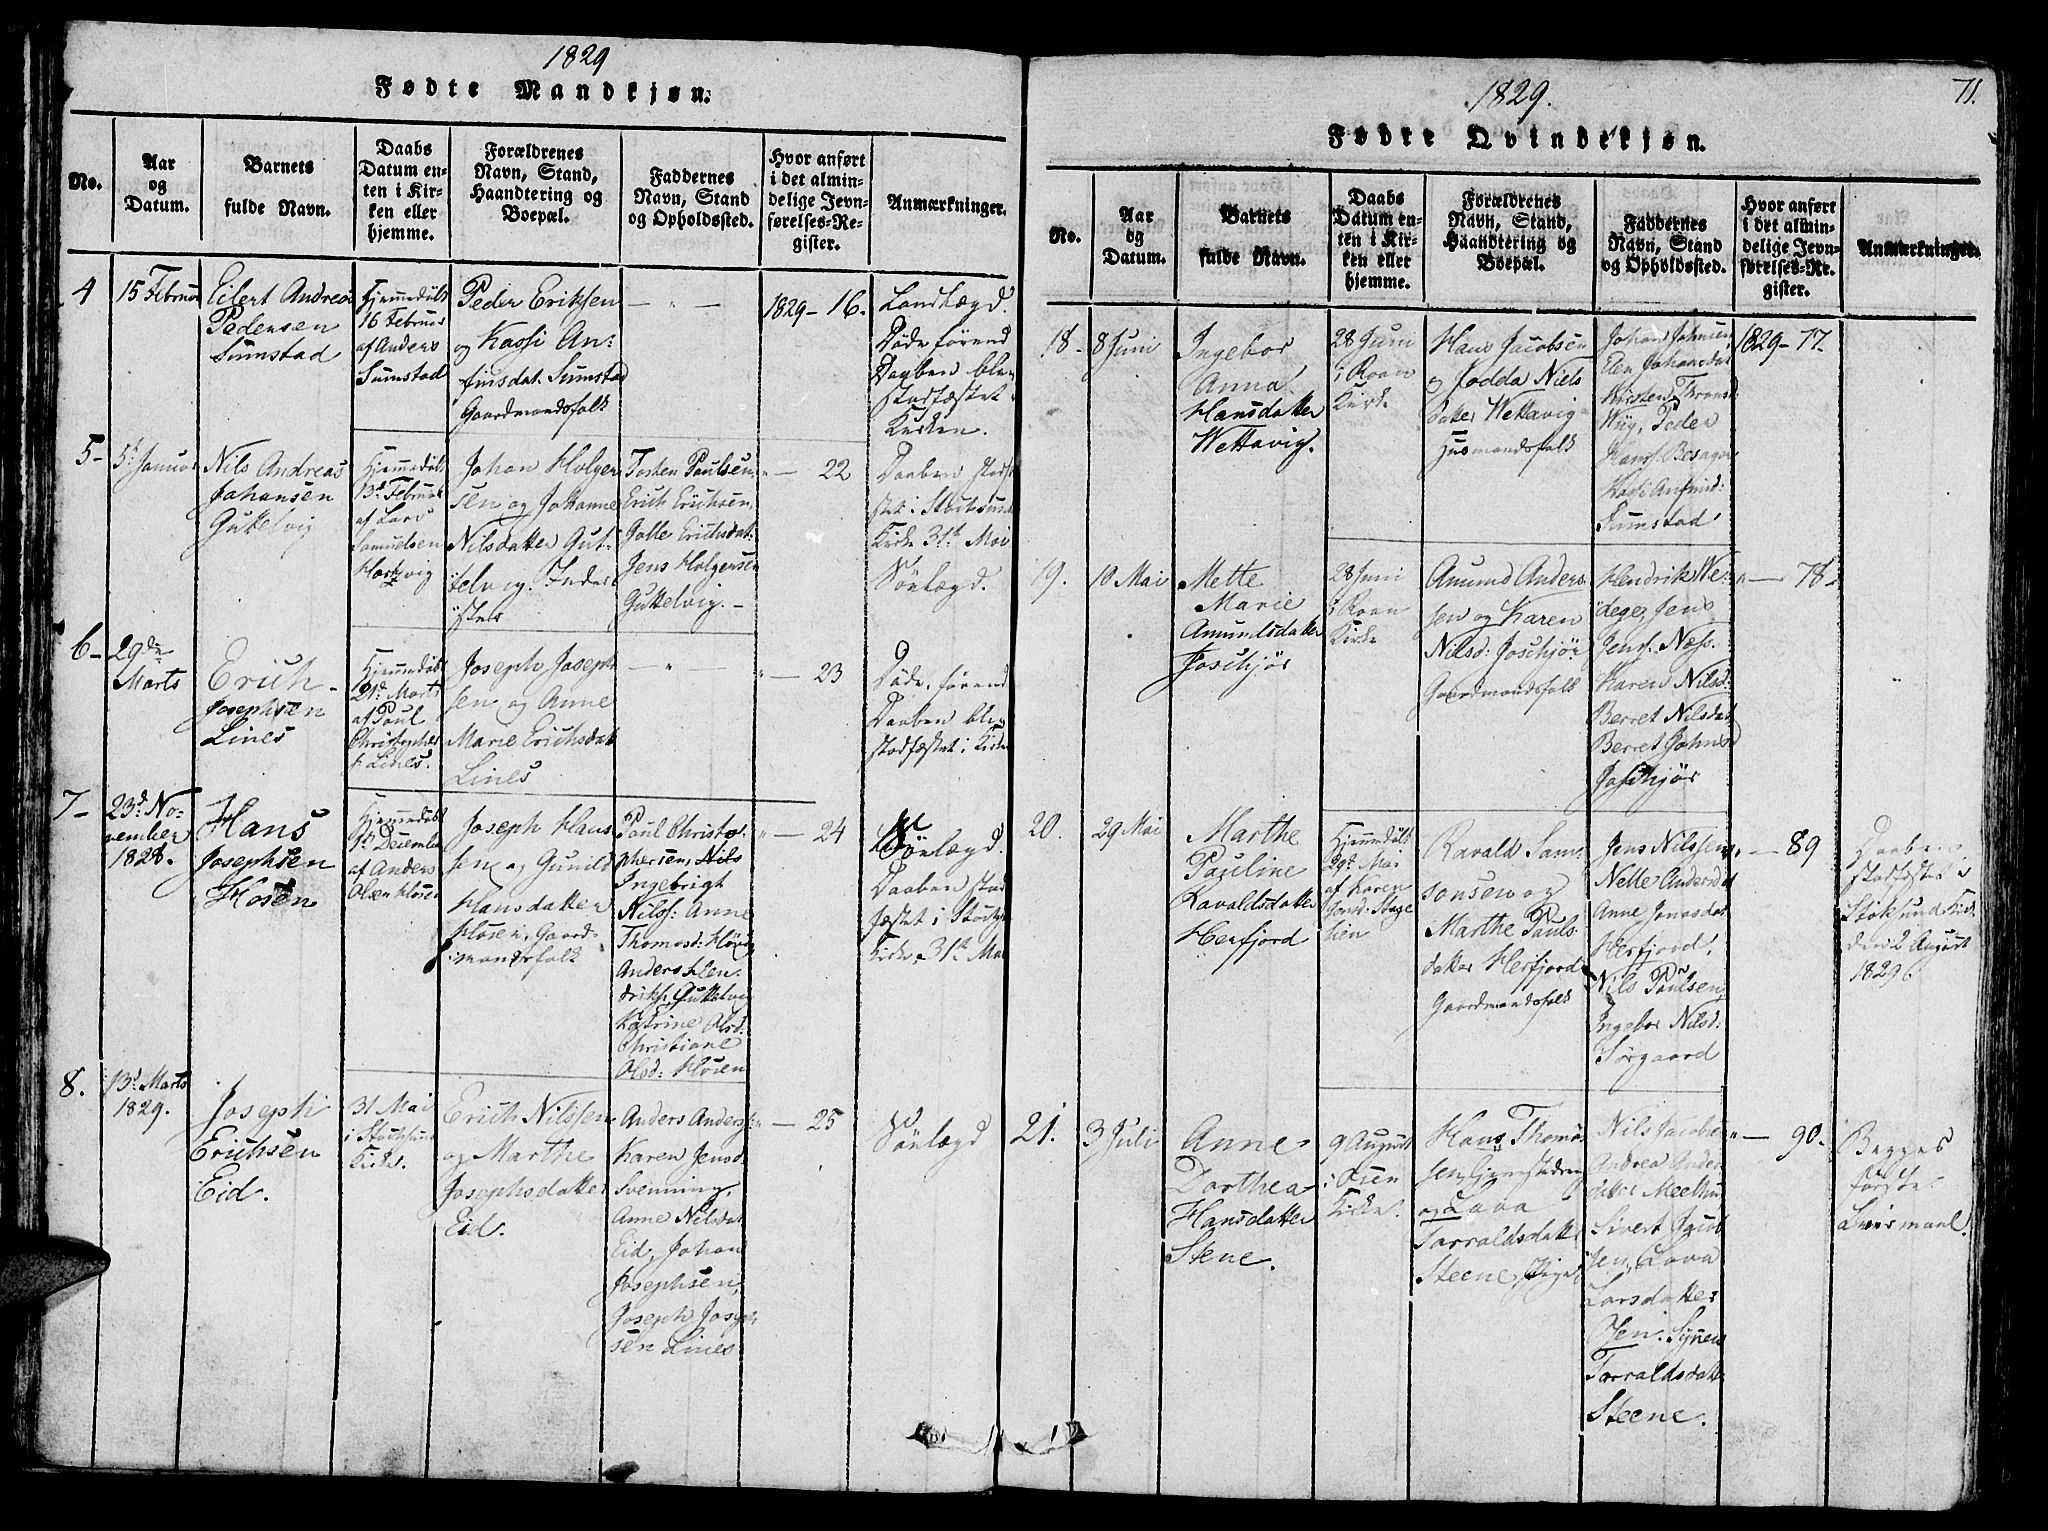 1829
Fødte Mandkjøn.
No.
Aar
og
Datum.
Barnets
fulde Navn.
Daabs
Datum en-
ten i Kir-
ken eller
hjemme.
Forældrenes
Navn, Stand,
Haandtering og
Boepæl.
Faddernes
Navn, Stand
og Opholdssted.
Hvor anført
i det almin-
delige Jevn-
førelses-Re-
gister.
Anmærkninger.
4
15 Februar
Eilert Andreas
Pedersen
Sumstad
Hjemmedøbt
16 Februar
af Anders
Sumstad
Peder Eriksen
og Kassi An-
finsdat. Sumstad
Gaardmandsfolk
— " —
1829 - 16.
Landlægd.
Døde førend
Daaben blev
stadfæstet i
Kirken.
5-
5t Januar
Nils Andreas
Johansen
Guttelvig
Hjemmedøbt
13d Februar
af Lars
Samuelsen
Hartvig
Johan Holger
sen og Johanne
Nilsdatter Gut-
telvig. Inder-
ster
Torsten Paulsen,
Erich Erichsen,
Golle Erichsdat.
Jens Holgersen
Guttelvig. -
" — 22
Daaben stadf-
stet i Stoksund
Kirke 31te Mai
Sönlægd.
6-
29de
Marts
Erich
Josephsen
Lines
Hjemmedøbt
21d Marts
af Paul
Christopher
s. Lines.
Joseph Joseph
sen og Anne
Marie Erichsdatt
Lines
— " —
" — 23
Døde førend
Daaben blev
stadfæstet i Kirke
7-
23d No-
vember
1828.
Hans
Josephsen
Hosen
Hjemmedøbt
1d December
af Anders
Olsen Hosen
Joseph Hans
sen og Gunild
Hansdatter
Hosen, Gaard-
mandsfolk
Paul Christo-
phersen, Nils
Ingebrigt
Nilss: Anne
Thomasd: Høvig
Anders Hen-
driks. Guttelvig
Katrine Olsd:
Christiane
Olsd: Hosen
" — 24
Sönlægd.
Daaben stad
fæstet i Stoks
Kirke 31te Mai
8.
13d Marts
1829.
Joseph
Erichsen
Eid.
31 Mai
i Stocksund
Kirke.
Erich Nilssen
og Marthe
Josephsdatter
Eid.
Anders Anders:
Karen Jensd:
Svenning,
Anne Nilsdat
Eid, Johan
Josephsen,
Joseph Joseph
sen Lines
" — 25
Sönlægd
1829.
71.
Fødte Qvindekjøn.
No.
Aar
og
Datum.
Barnets
fulde Navn.
Daabs
Datum en-
ten i Kir-
ken eller
hjemme.
Forældrenes
Navn, Stand,
Haandtering og
Boepæl.
Faddernes
Navn, Stand
og Opholdssted.
Hvor anført
i det almin-
delige Jevn-
førelses-Re-
gister.
Anmærkninger.
18-
8 Juni
Ingebor
Anna
Hansdatter
Wettavig.
28 Juni
i Roan
Kirke
Hans Jacobsen
og Jodda Niels
datter Wettavig
Husmandsfolk
Johan Johnsen
Elen Johansdat
Kirsten Thronds
Wiig, Peder
Hans: Besager
Kassi Anfinsd:
Sumstad
1829- 77.
19.
10 Mai
Mette
Marie
Amundsdatter
Joschjør
28 Juni
i Roan
Kirke
Amund Anders
sen og Karen
Nilsd: Joschjør
Gaardmandsfolk
Hendrik We-
dege, Jens
Jens. Næss.
Karen Nilsd:
Berret Nilsdat
Berret Johns
Joschjør
" — 78.
20.
29 Mai
Marthe
Pauline
Ravaldsdatter
Herfjord
Hjemmedøbt
29d Mai
af Karen
Jonsd: Stage
lien
Ravald Sam-
sonsen og
Marthe Pauls-
datter Herfjord
Gaardmandsfolk
Jens Nilssen,
Nelle Andersdat
Anne Jonasdat
Herfjord,
Nils Paulsen,
Ingebor Nilsd:
Sørgaard
" — 89
Daaben
stadfæstet i
Stoksund Kirke
den 2 August
1829
21.
3 Juli
Anne
Dorthea
Hansdatter
Stene.
9 August
i Osen
Kirke.
Hans Thomas
sen
og Lava
Tarraldsdatter
Steene, Pige
Nils Jacobsen
Andrea Ander
datter Meelhus
Sivert Jacob
sen, Lova
Larsdatter
Osen. Synnev
Tarraldsdatt
Steene.
" — 90.
Begges
første
Leiermaal.